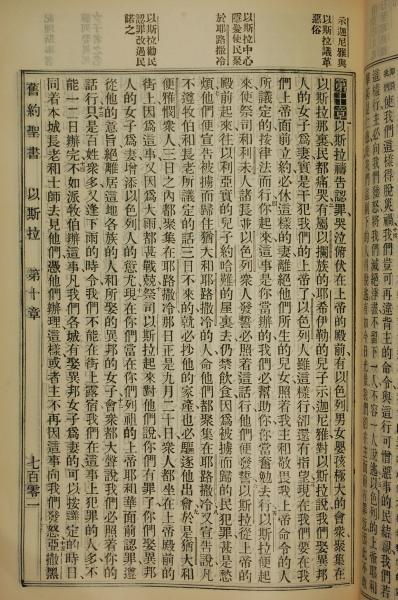 使我們這樣得脫災禍我們豈可再違背主的命令與這行可憎惡事的民結親我們若
示迦尼雅與
以斯拉議革
惡俗
以斯拉中心
隱憂使民聚
於耶路撒冷
以斯拉勸民
認罪改過民
諾之
第十章以斯拉禱告認罪哭泣俯伏在上帝的殿前有以色列男女嬰孩極大的會衆聚集在
以斯拉那裏民都痛哭有屬以攔族的耶希伊勒的兒子示迦尼雅對以斯拉說我們娶異邦
人的女子爲妻實是干犯我們的上帝了以色列人雖這樣行卻還有指望現在我們要在我
們上帝面前立約必休這樣的妻離絕他們所生的兒女照着我主和敬畏我上帝命令的人
所議定的按律法而行你起來這事是你當辦的我們必幫助你你當奮勉去行以斯拉便起
來使祭司和利未人諸長並以色列衆人發誓必照着這話行他們便發誓以斯拉從上帝的
殿前起來往以利亞實的兒子約哈難的屋裏去仍禁飲食因爲被擄而歸的民犯罪甚是愁
煩他們便宣告被擄而歸住猶大和耶路撒冷的人命他們都聚集在耶路撒冷又宣告說凡
不遵牧伯和長老所議定的話三日不來的就必抄他的家產也必驅逐他出會於是猶大和
便雅憫衆人三日之內都聚集在耶路撒冷那日正是九月二十日衆人都坐在上帝殿前的
街上因爲這事又因爲大雨都甚戰兢祭司以斯拉起來對他們說你們有罪了你們娶異邦
人的女子爲妻增添以色列人的愆尤現在你們當在你們列祖的上帝耶和華面前認罪遵
從他的意旨絕離居這地各族的人和所娶的異邦的女子會衆都大聲說我們必照着你的
話行只是百姓衆多又逢下雨的時令我們不能在街上露宿我們在這事上犯罪的人多不
能一二日辦完不如派牧伯辦這事凡我們各城有娶異邦女子爲妻的可以按譁定的時日
同着本城長老和士師去見他們憑他們辦理這樣或者主不再因這事向我們發怒亞撒黑
舊約聖書 以斯拉 第十章 七百零一